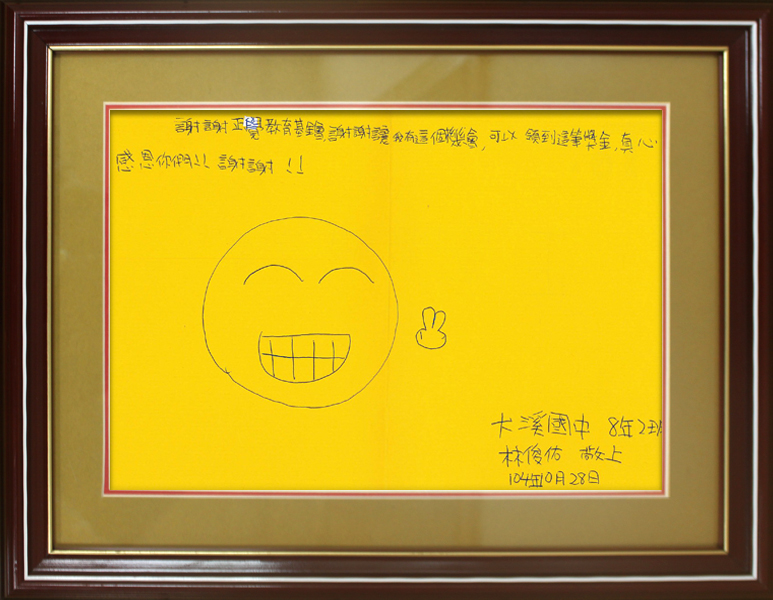 謝謝正覺教育基金會,謝謝讓我有這個機會,可以領到這筆獎金,真心
感恩你們!! 謝謝 !!
大溪國中 8年2班
林俊佑 敬上
104年10月28日